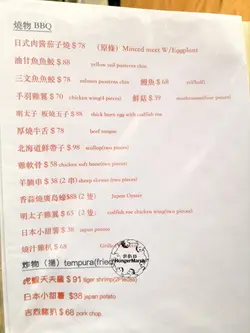 燒物 BBQ
日式肉醬茄子燒 $78 (原條) Minced meat W/Eggplant
油甘魚魚鮫 $88 yellow tail posterns chin
三文魚魚鮫 $78 salmon posterns chin 鰻魚 $68 eel(half)
手羽雞翼 $70 chicken wing(4 pieces) 鮮菇 $39 mushrooms(four pieces)
明太子 板燒玉子 $88 thick burn egg with codfish roe
厚燒牛舌 $78 beef tongue
北海道鮮帶子 $98 scallop(two pieces)
雞軟骨 $58 chicken soft bone(two pieces)
羊腩串 $38 (2 串) sheep skewer (two pieces)
香蒜燒廣島蠔$88 (2 隻) Japan Oyster
明太子雞翼 $65 (2 隻) codfish roe chicken wing(two pieces)
日本小甜薯 $38 japan potato
燒汁雞扒 $68
炸物 (揚) tempura(fried
HungerMama
虎蝦天夭羅 $91 tiger shrimp(2 pieces)
日本小甜薯 $38 japan potato
吉烈豬扒 $68 pork chop